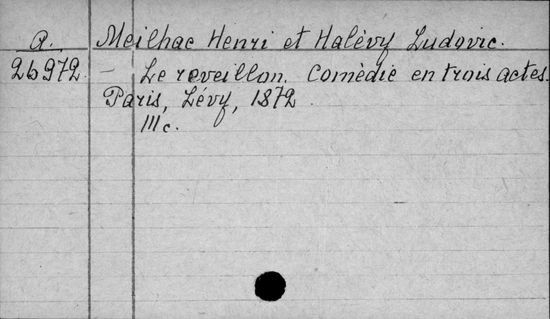 a. Meilhac Henri et Halévy Ludovic.
26972. - Le reveillon. Comèdie en trois actes.
Paris, Lévy, 1872.
III c.